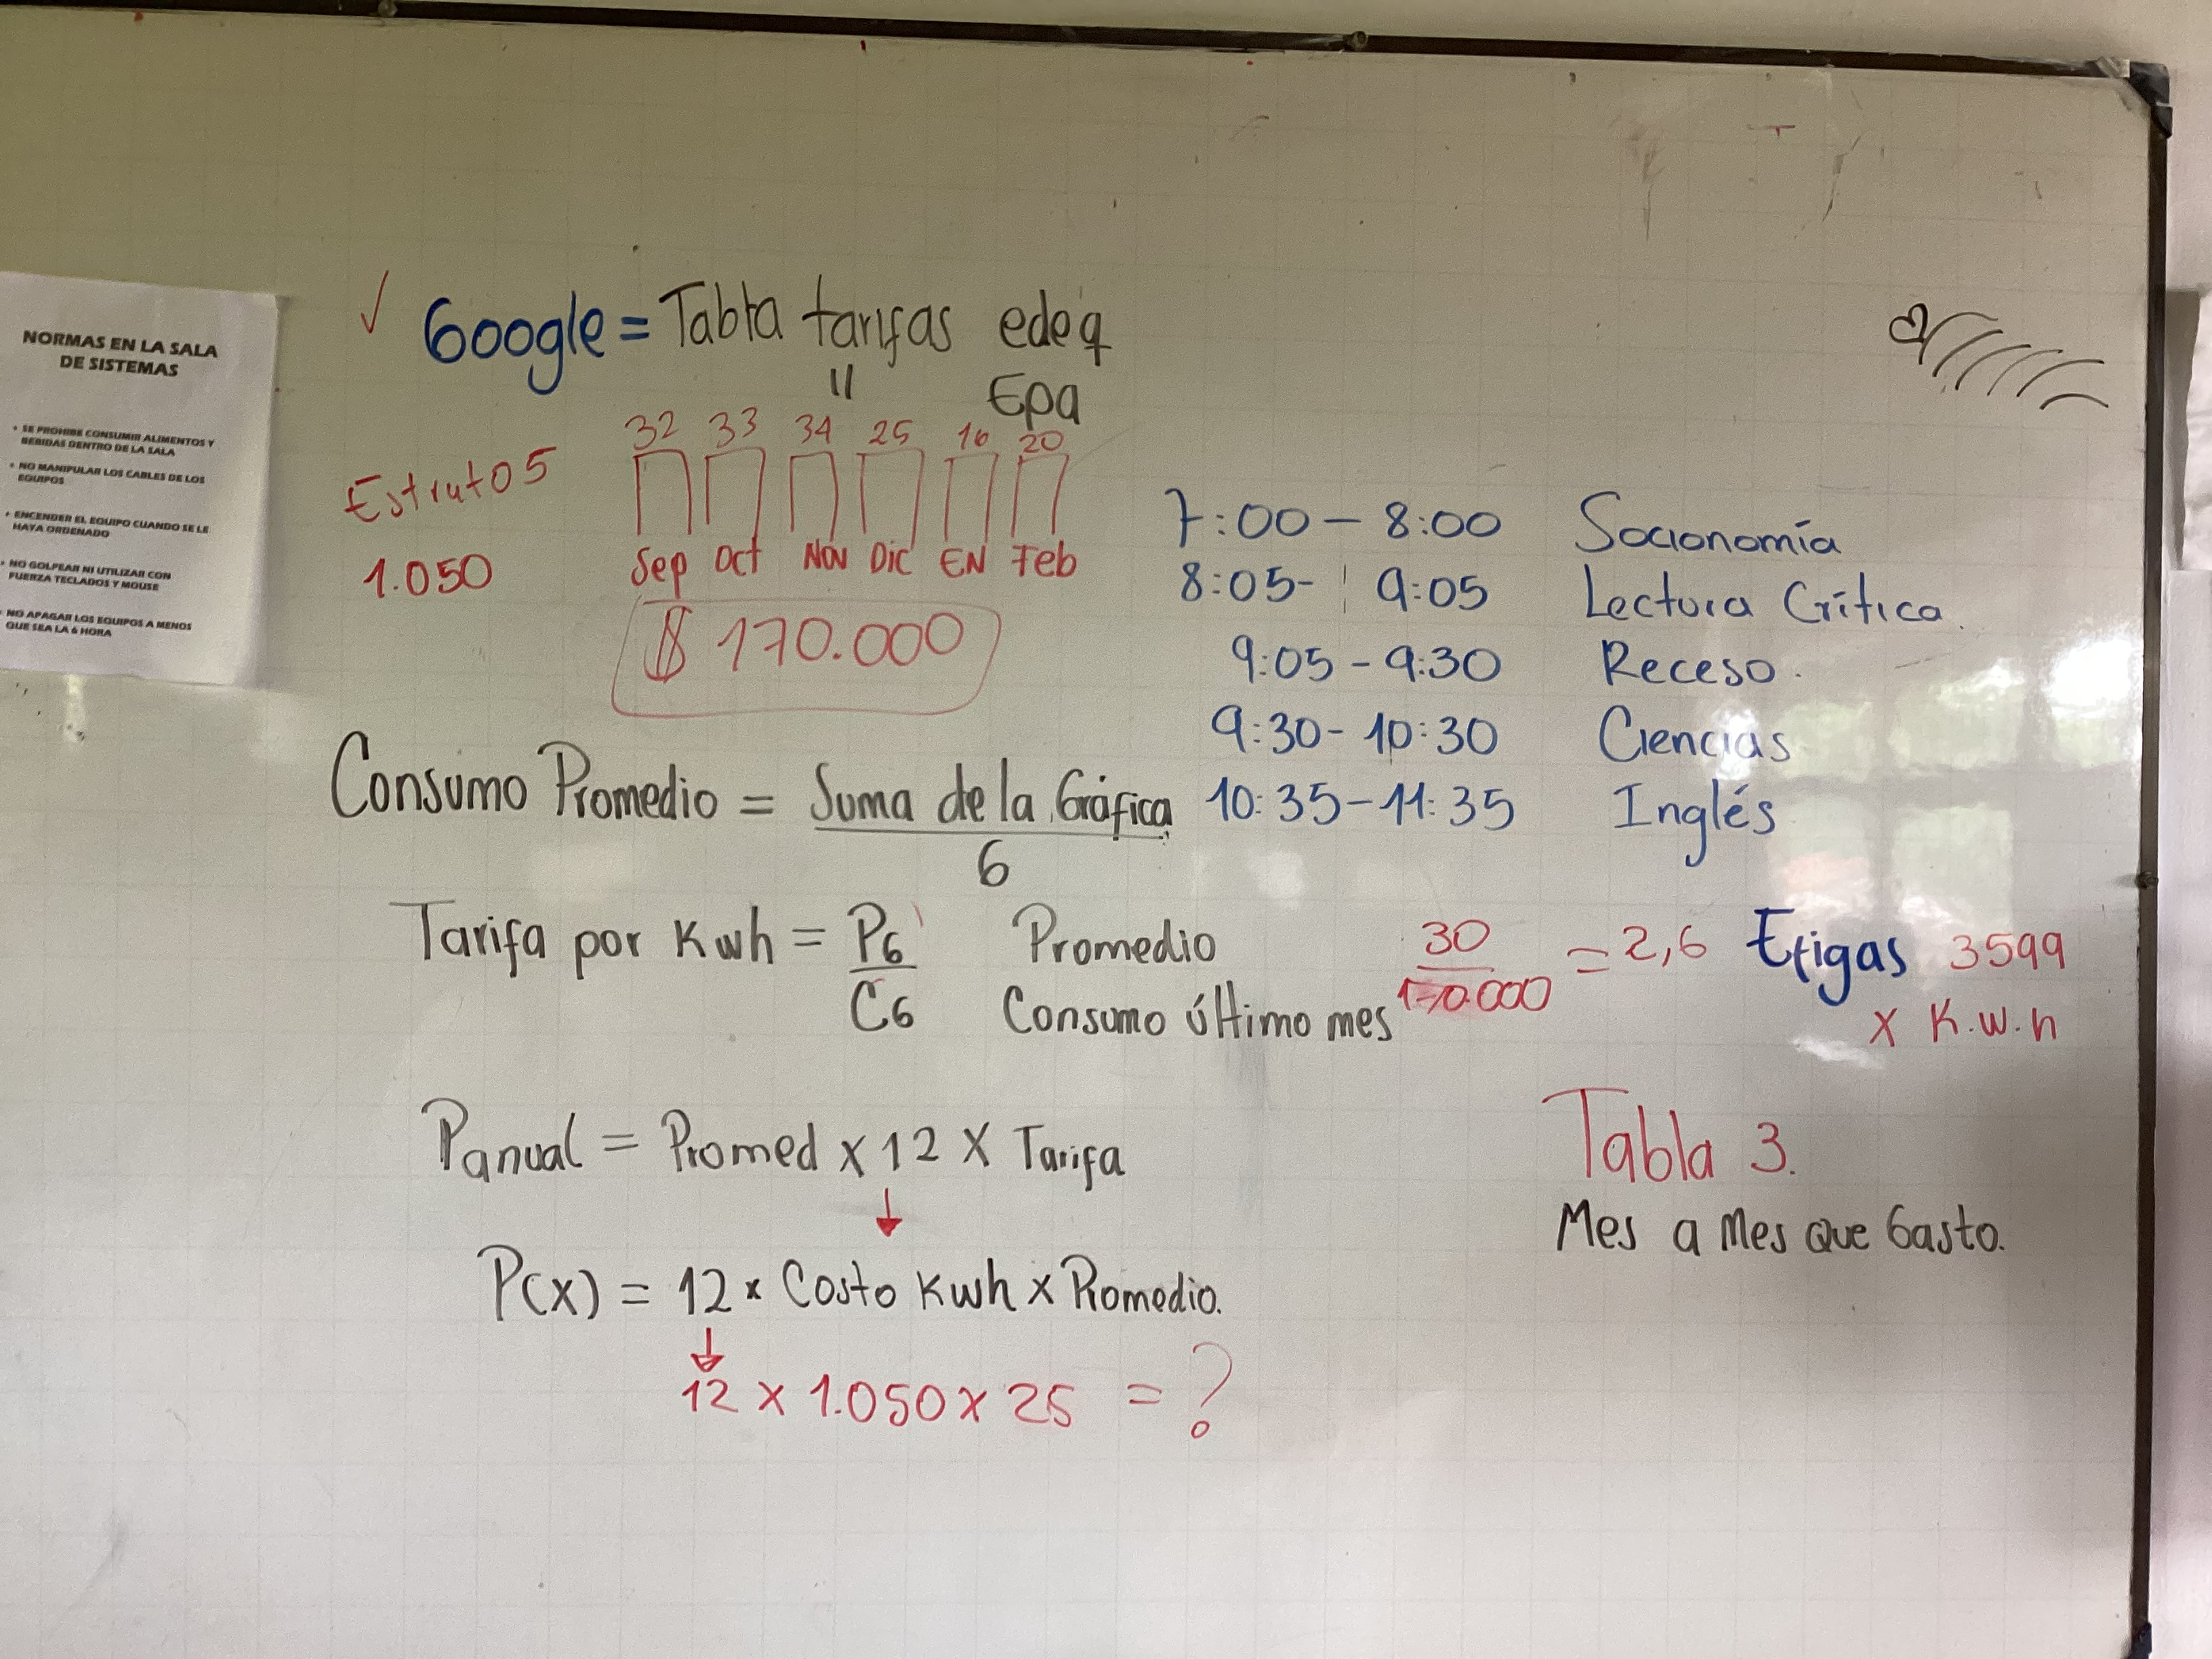 NORMAS EN LA SALA
DE SISTEMAS
• SE PROHIBE CONSUMIR ALIMENTOS Y
BEBIDAS DENTRO DE LA SALA
• NO MANIPULAR LOS CABLES DE LOS
EQUIPOS
• ENCENDER EL EQUIPO CUANDO SE LE
HAYA ORDENADO
• NO GOLPEAR NI UTILIZAR CON
FUERZA TECLADOS Y MOUSE
NO APAGAR LOS EQUIPOS A MENOS
QUE SEA LA 6 HORA
✓ Google = Tabla tarifas edeq
" Epa
32 33 34 25 16 20
Estrato 5
1.050
Sep Oct Nov Dic EN Feb
$ 170.000
7:00 - 8:00 Socionomía
8:05 - 9:05 Lectura Crítica.
9:05 - 9:30 Receso.
9:30 - 10:30 Ciencias
10:35 - 11:35 Inglés
Consumo Promedio = Suma de la Gráfica
6
Tarifa por Kwh = P6 Promedio
C6 Consumo último mes
30
170.000
= 2,6
Efigas 3599
x K.w.h
Panual = Promed x 12 x Tarifa
P(x) = 12 x Costo Kwh x Promedio.
12 x 1.050 x 25 = ?
Tabla 3.
Mes a Mes Que Gasto.